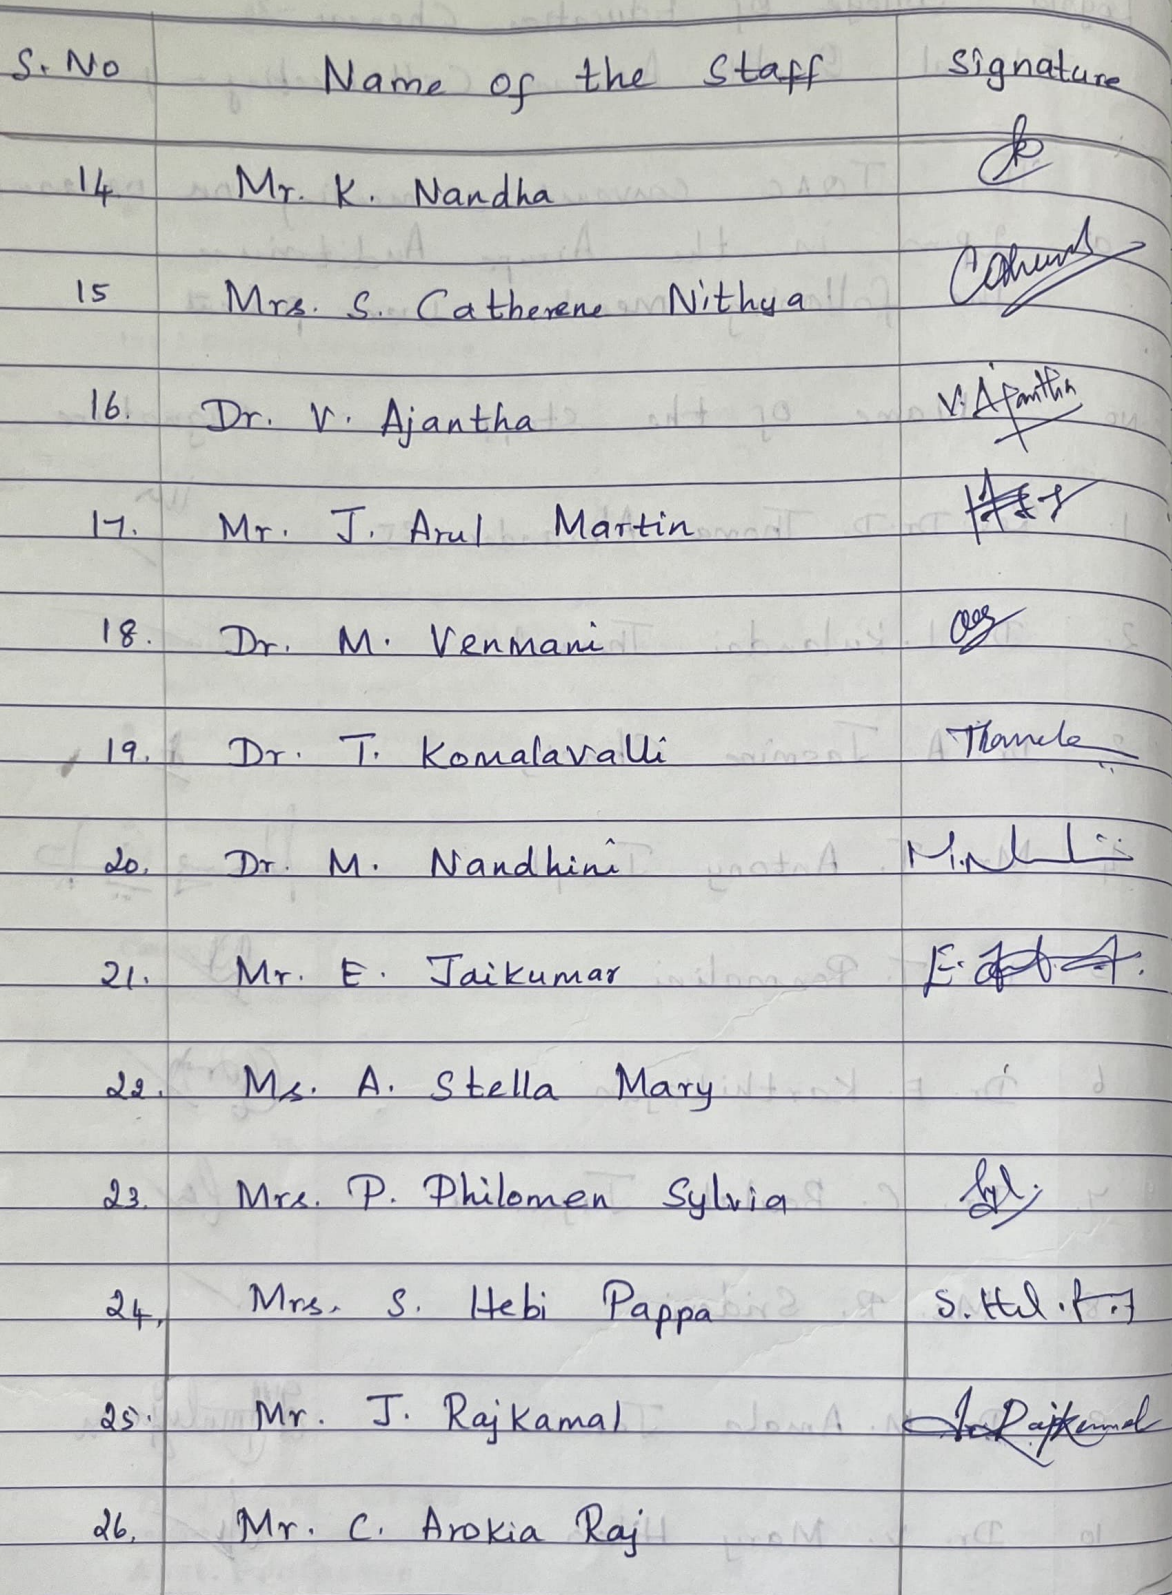 S. No Name of the Staff Signature
14 Mr. K. Nandha
15 Mrs. S. Catherene Nithya
16. Dr. V. Ajantha V. Ajantha
17. Mr. J. Arul Martin
18. Dr. M. Venmani
19. Dr. T. Komalavalli
20. Dr. M. Nandhini
21. Mr. E. Jaikumar
22. Ms. A. Stella Mary
23. Mrs. P. Philomen Sylvia
24. Mrs. S. Hebi Pappa
25. Mr. J. Rajkamal J. Rajkamal
26. Mr. C. Arokia Raj